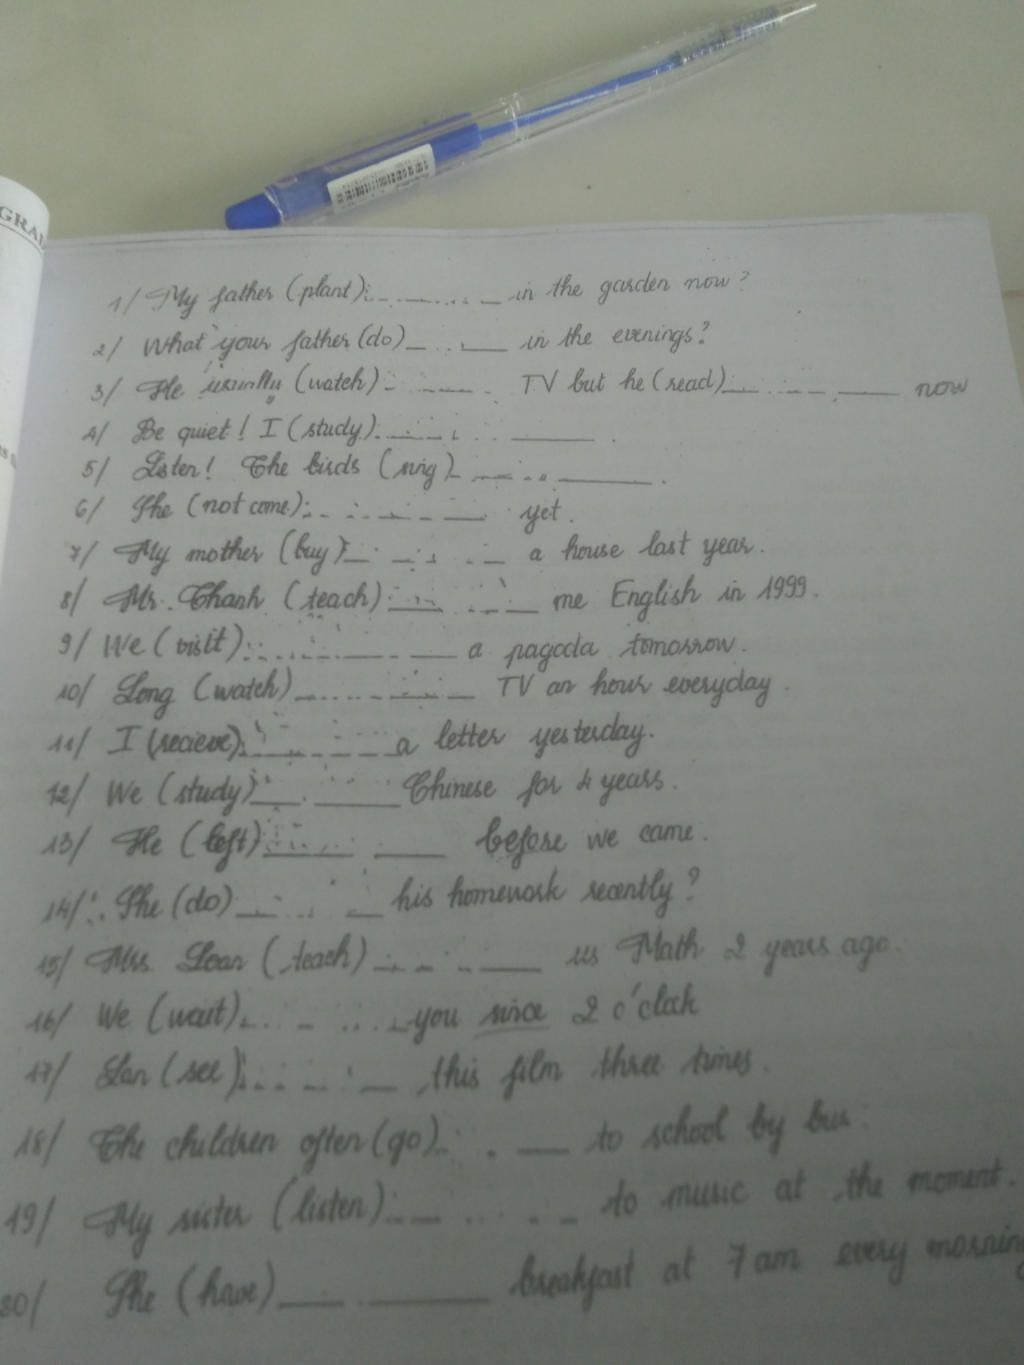 GRAM
1/ My father (plant) _ _ _ _ in the garden now?
2/ What your father (do) _ _ _ in the evenings?
3/ He usually (watch) _ _ _ TV but he (read) _ _ _ now
4/ Be quiet! I (study) _ _ _ .
5/ Listen! The birds (sing) _ _ _ .
6/ She (not come) _ _ _ yet.
7/ My mother (buy) _ _ _ a house last year.
8/ Mr. Thanh (teach) _ _ _ me English in 1999.
9/ We (visit) _ _ _ a pagoda tomorrow.
10/ Long (watch) _ _ _ TV an hour everyday.
11/ I (recieve) _ _ _ a letter yesterday.
12/ We (study) _ _ _ Chinese for 4 years.
13/ He (left) _ _ _ before we came.
14/ She (do) _ _ _ his homework recently?
15/ Mrs. Loan (teach) _ _ _ us Math 2 years ago.
16/ We (wait) _ _ _ you since 2 o'clock
17/ Lan (see) _ _ _ this film three times.
18/ The children often (go) _ _ _ to school by bus.
19/ My sister (listen) _ _ _ to music at the moment.
20/ She (have) _ _ _ breakfast at 7 am every morning